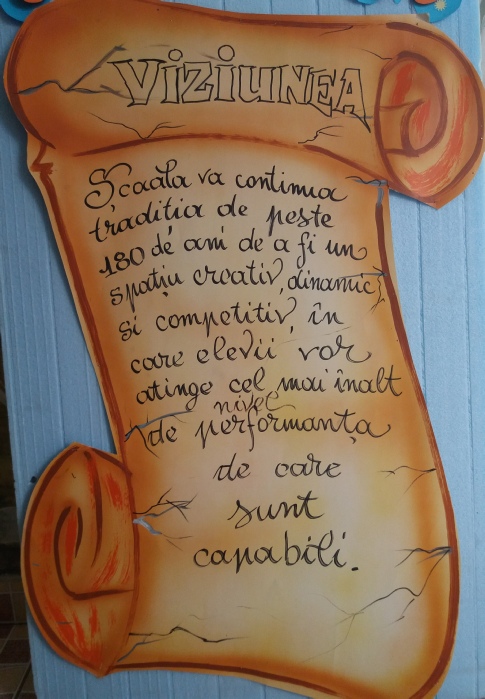 VIZIUNEA
Școala va continua
traditia de peste
180 de ani de a fi un
spațiu creativ, dinamic,
si competitiv, în
care elevii vor
atinge cel mai înalt
nivel
de performanța
de care
sunt
capabili.